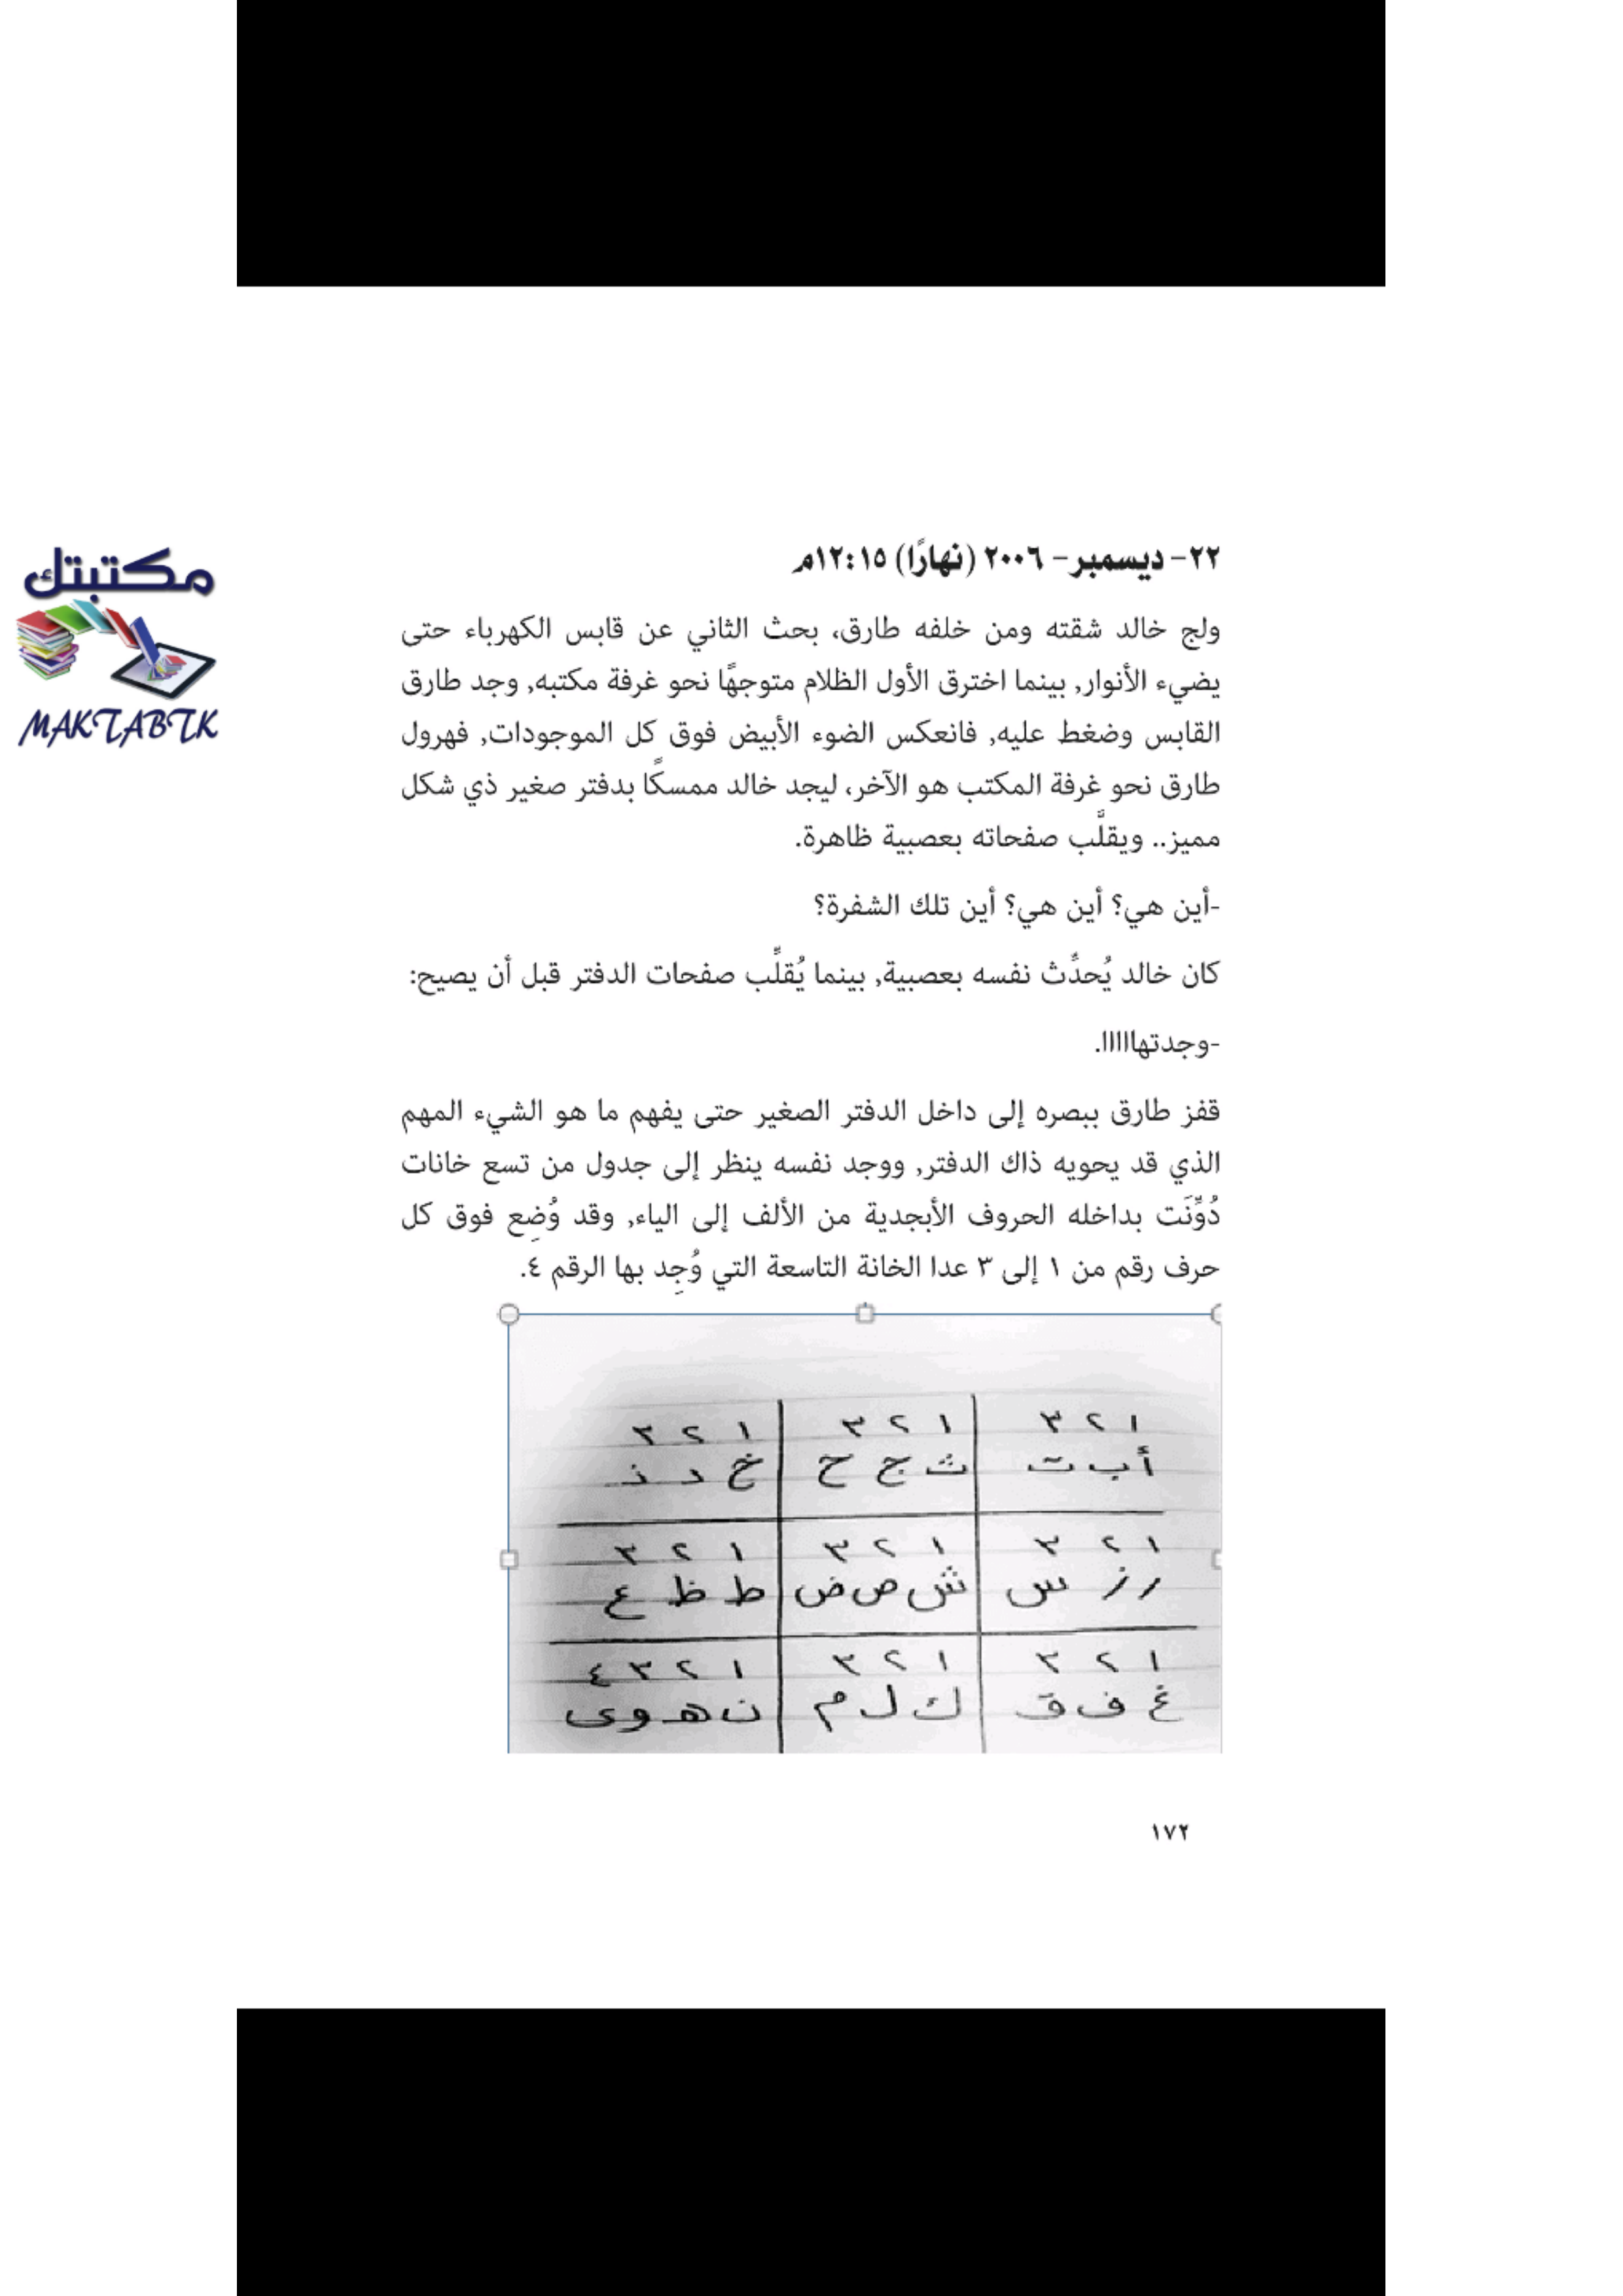 ٢٢- ديسمبر- ٢٠٠٦ (نهارًا) ١٢:١٥م
مكتبتك
MAKTABTK
ولج خالد شقته ومن خلفه طارق، بحث الثاني عن قابس الكهرباء حتى
يضيء الأنوار, بينما اخترق الأول الظلام متوجهًا نحو غرفة مكتبه, وجد طارق
القابس وضغط عليه, فانعكس الضوء الأبيض فوق كل الموجودات, فهرول
طارق نحو غرفة المكتب هو الآخر، ليجد خالد ممسكًا بدفتر صغير ذي شكل
مميز.. ويقلِّب صفحاته بعصبية ظاهرة.
-أين هي؟ أين هي؟ أين تلك الشفرة؟
كان خالد يُحدِّث نفسه بعصبية, بينما يُقلِّب صفحات الدفتر قبل أن يصيح:
-وجدتهااااا.
قفز طارق ببصره إلى داخل الدفتر الصغير حتى يفهم ما هو الشيء المهم
الذي قد يحويه ذاك الدفتر, ووجد نفسه ينظر إلى جدول من تسع خانات
دُوِّنَت بداخله الحروف الأبجدية من الألف إلى الياء, وقد وُضِع فوق كل
حرف رقم من ١ إلى ٣ عدا الخانة التاسعة التي وُجِد بها الرقم ٤.
١ ٢ ٣ ١ ٢ ٣ ١ ٢ ٣
أ ب ت ث ج ح خ د ذ
١ ٢ ٣ ١ ٢ ٣ ١ ٢ ٣
ر ز س ش ص ض ط ظ ع
١ ٢ ٣ ١ ٢ ٣ ١ ٢ ٣ ٤
غ ف ق ك ل م ن هـ و ى
١٧٢